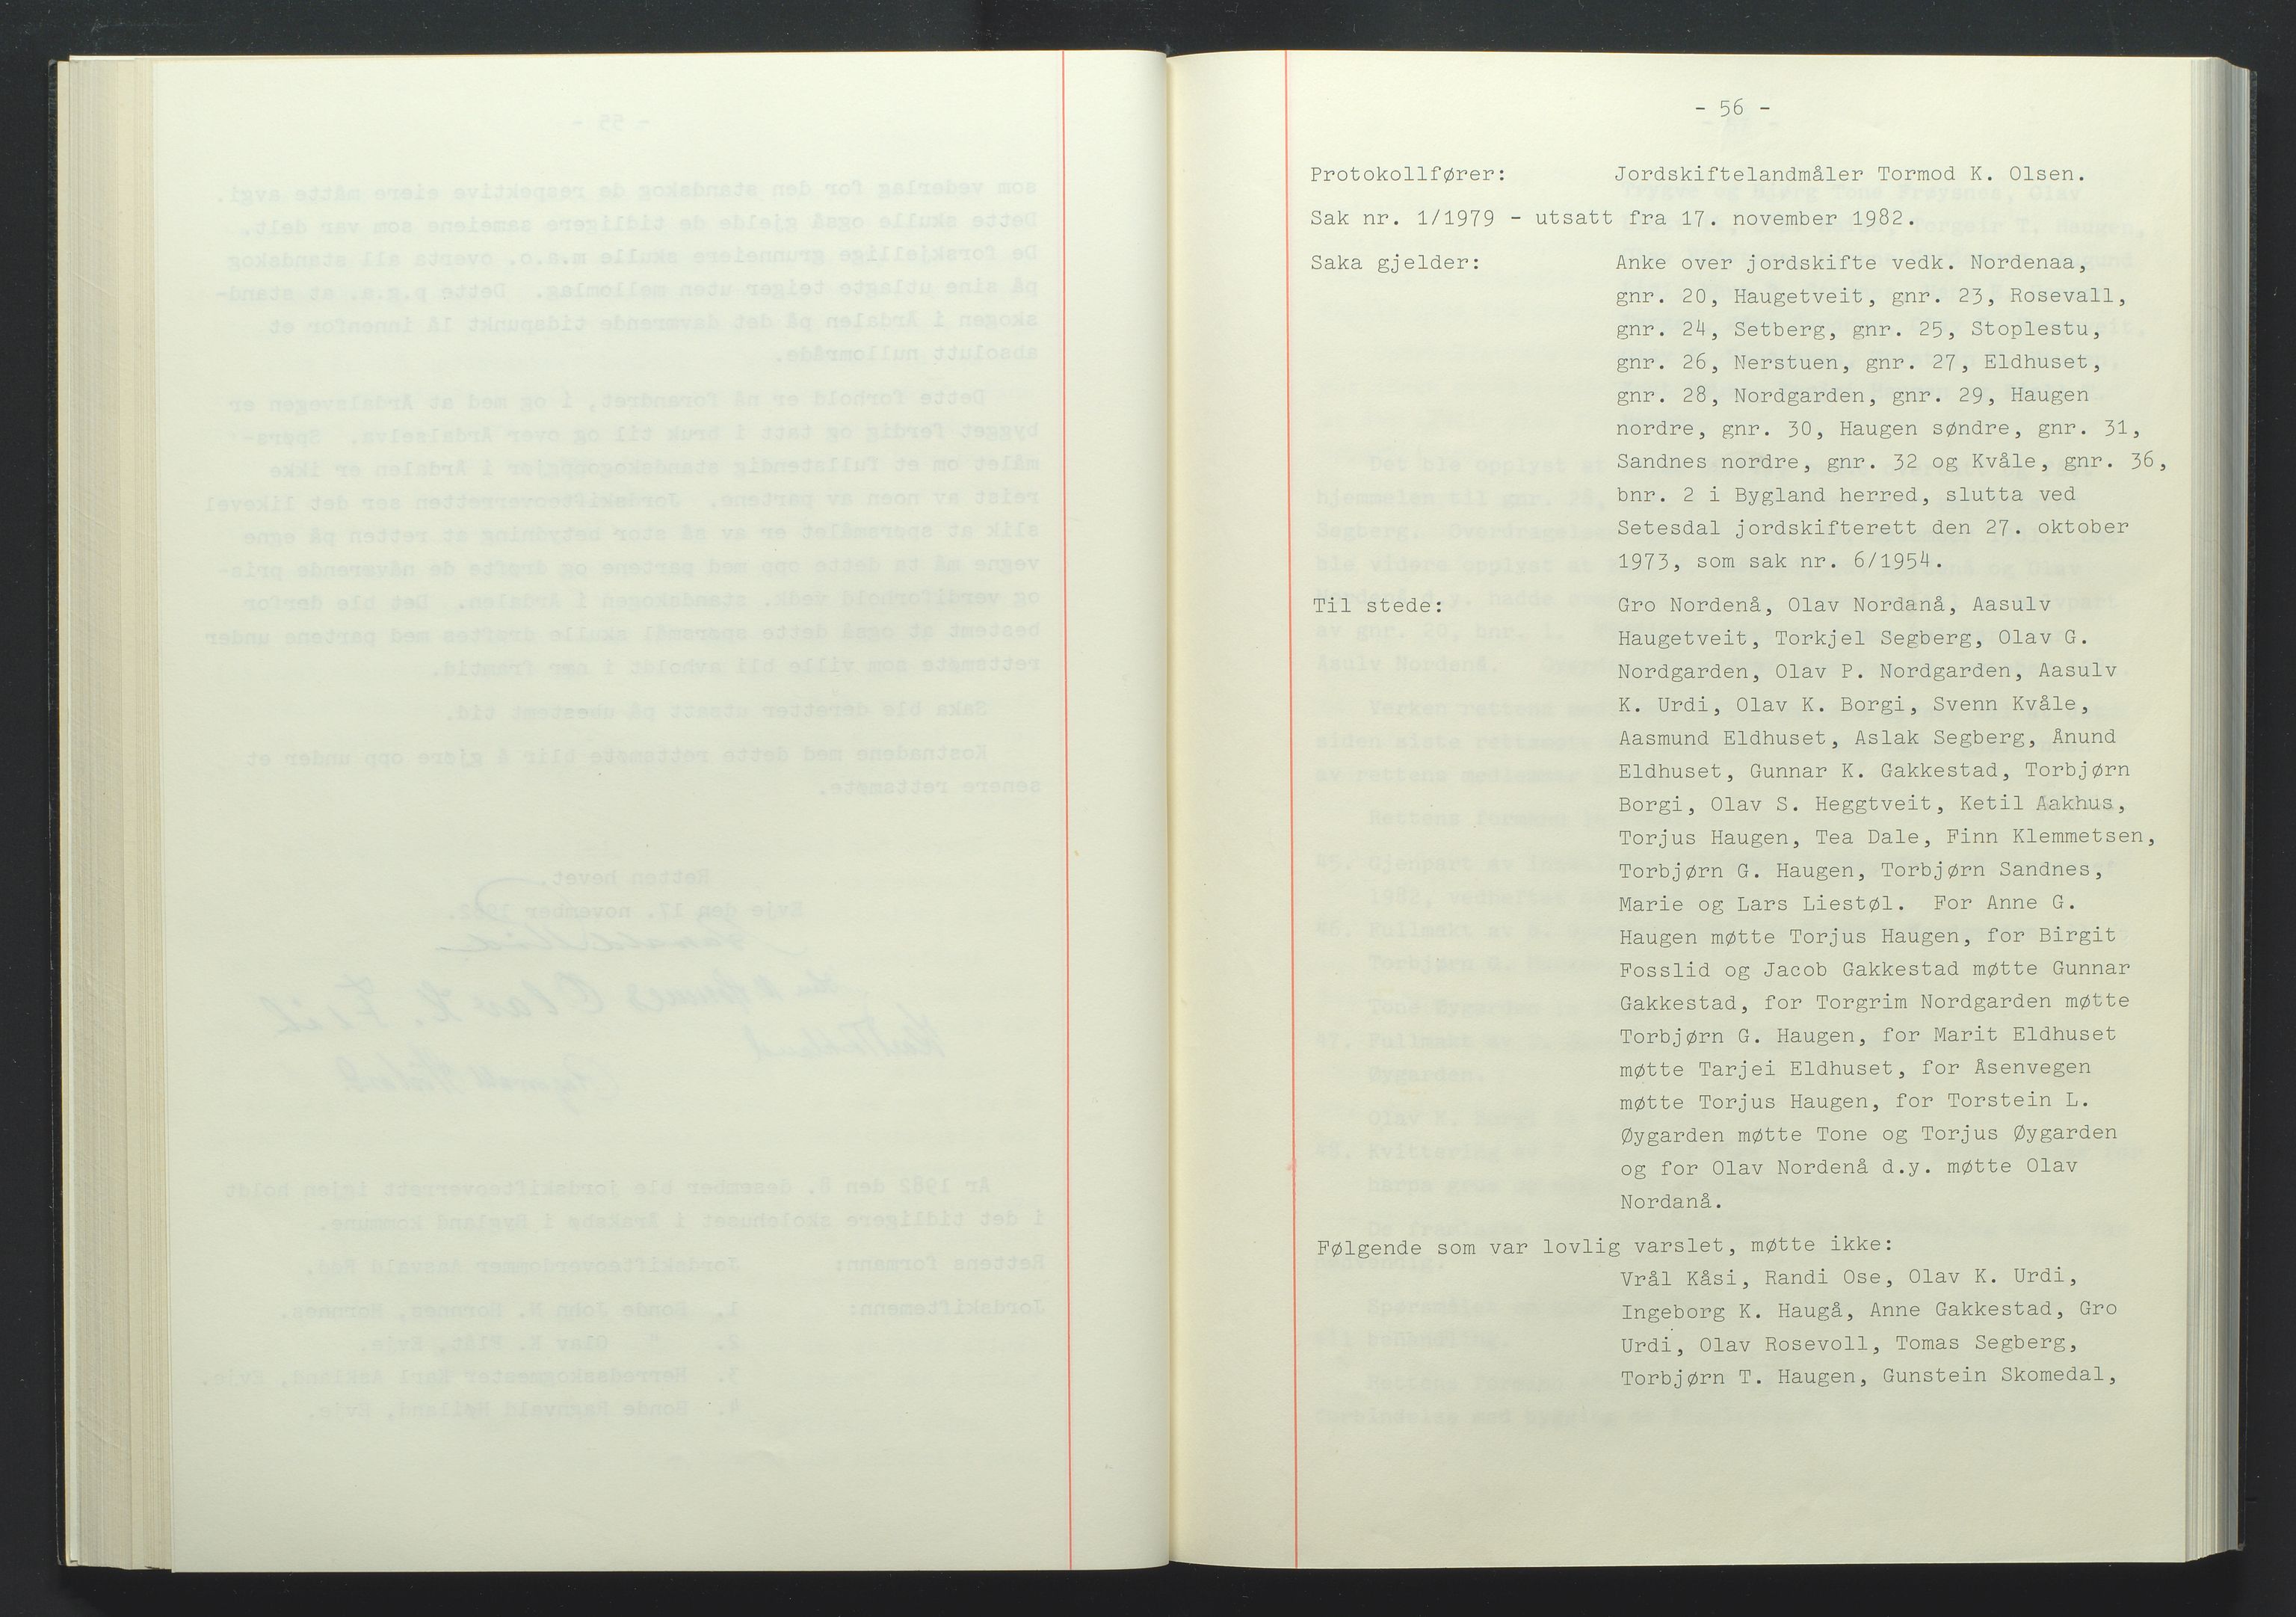 - 56 -
Protokollfører: Jordskiftelandmåler Tormod K. Olsen.
Sak nr. 1/1979 - utsatt fra 17. november 1982.
Saka gjelder: Anke over jordskifte vedk. Nordenaa,
gnr. 20, Haugetveit, gnr. 23, Rosevall,
gnr. 24, Setberg, gnr. 25, Stoplestu,
gnr. 26, Nerstuen, gnr. 27, Eldhuset,
gnr. 28, Nordgarden, gnr. 29, Haugen
nordre, gnr. 30, Haugen søndre, gnr. 31,
Sandnes nordre, gnr. 32 og Kvåle, gnr. 36,
bnr. 2 i Bygland herred, slutta ved
Setesdal jordskifterett den 27. oktober
1973, som sak nr. 6/1954.
Til stede: Gro Nordenå, Olav Nordanå, Aasulv
Haugetveit, Torkjel Segberg, Olav G.
Nordgarden, Olav P. Nordgarden, Aasulv
K. Urdi, Olav K. Borgi, Svenn Kvåle,
Aasmund Eldhuset, Aslak Segberg, Ånund
Eldhuset, Gunnar K. Gakkestad, Torbjørn
Borgi, Olav S. Heggtveit, Ketil Aakhus,
Torjus Haugen, Tea Dale, Finn Klemmetsen,
Torbjørn G. Haugen, Torbjørn Sandnes,
Marie og Lars Liestøl. For Anne G.
Haugen møtte Torjus Haugen, for Birgit
Fosslid og Jacob Gakkestad møtte Gunnar
Gakkestad, for Torgrim Nordgarden møtte
Torbjørn G. Haugen, for Marit Eldhuset
møtte Tarjei Eldhuset, for Åsenvegen
møtte Torjus Haugen, for Torstein L.
Øygarden møtte Tone og Torjus Øygarden
og for Olav Nordenå d.y. møtte Olav
Nordanå.
Følgende som var lovlig varslet, møtte ikke:
Vrål Kåsi, Randi Ose, Olav K. Urdi,
Ingeborg K. Haugå, Anne Gakkestad, Gro
Urdi, Olav Rosevoll, Tomas Segberg,
Torbjørn T. Haugen, Gunstein Skomedal,